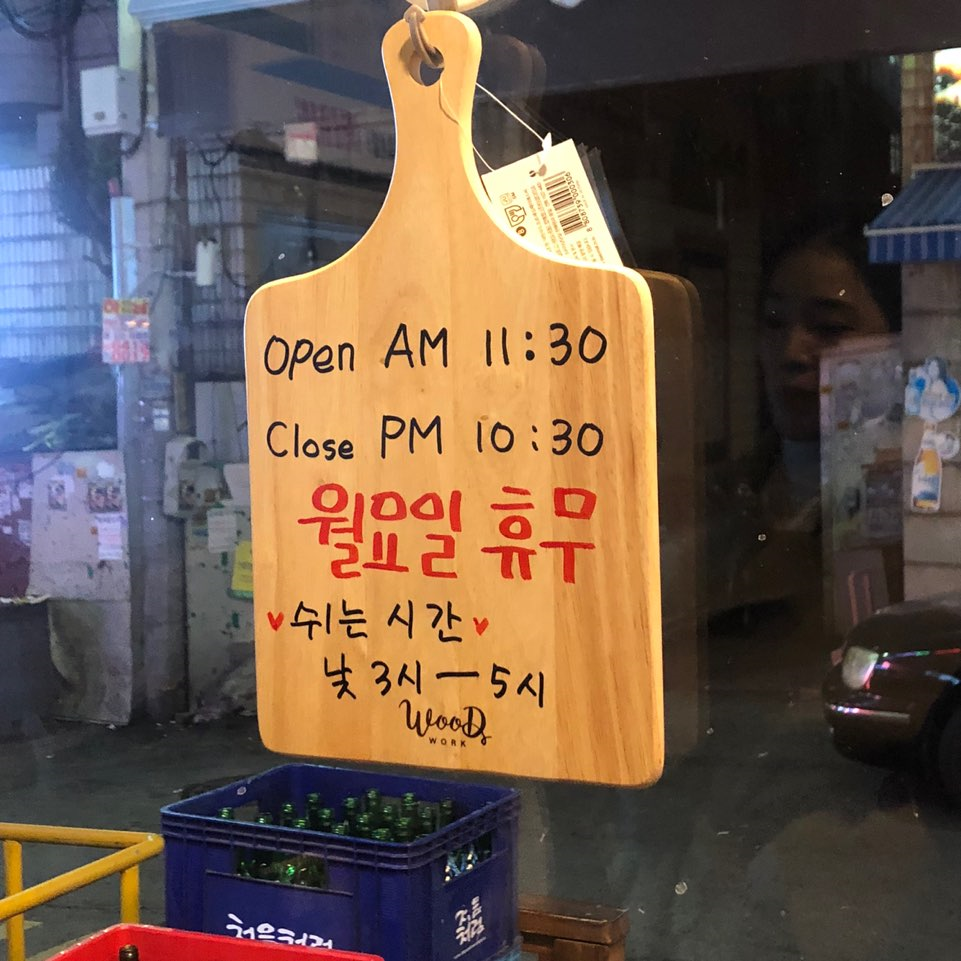 Open AM 11:30
Close PM 10:30
월요일 휴무
♥쉬는 시간♥
낮 3시 — 5시
WooDs
WORK
처음처럼
처음
처럼